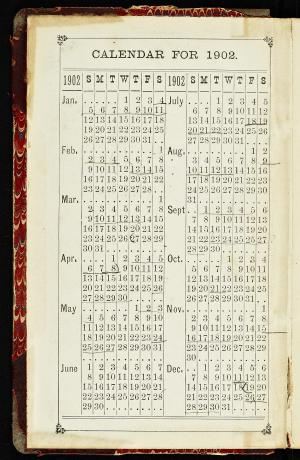 CALENDAR FOR 1902.
1902 S M T W T F S
Jan. . . . 1 2 3 4
5 6 7 8 9 10 11
12 13 14 15 16 17 18
19 20 21 22 23 24 25
26 27 28 29 30 31 .
Feb. . . . . . . 1
2 3 4 5 6 7 8
9 10 11 12 13 14 15
16 17 18 19 20 21 22
23 24 25 26 27 28 .
Mar. . . . . . . 1
2 3 4 5 6 7 8
9 10 11 12 13 14 15
16 17 18 19 20 21 22
23 24 25 26 27 28 29
30 31 . . . . .
Apr. . . 1 2 3 4 5
6 7 8 9 10 11 12
13 14 15 16 17 18 19
20 21 22 23 24 25 26
27 28 29 30 . . .
May . . . . 1 2 3
4 5 6 7 8 9 10
11 12 13 14 15 16 17
18 19 20 21 22 23 24
25 26 27 28 29 30 31
June 1 2 3 4 5 6 7
8 9 10 11 12 13 14
15 16 17 18 19 20 21
22 23 24 25 26 27 28
29 30 . . . . .
1902 S M T W T F S
July . . 1 2 3 4 5
6 7 8 9 10 11 12
13 14 15 16 17 18 19
20 21 22 23 24 25 26
27 28 29 30 31 . .
Aug. . . . . . 1 2
3 4 5 6 7 8 9
10 11 12 13 14 15 16
17 18 19 20 21 22 23
24 25 26 27 28 29 30
31 . . . . . .
Sept . 1 2 3 4 5 6
7 8 9 10 11 12 13
14 15 16 17 18 19 20
21 22 23 24 25 26 27
28 29 30 . . . .
Oct. . . . 1 2 3 4
5 6 7 8 9 10 11
12 13 14 15 16 17 18
19 20 21 22 23 24 25
26 27 28 29 30 31 .
Nov. . . . . . . 1
2 3 4 5 6 7 8
9 10 11 12 13 14 15
16 17 18 19 20 21 22
23 24 25 26 27 28 29
30 . . . . . .
Dec. . 1 2 3 4 5 6
7 8 9 10 11 12 13
14 15 16 17 18 19 20
21 22 23 24 25 26 27
28 29 30 31 . . .